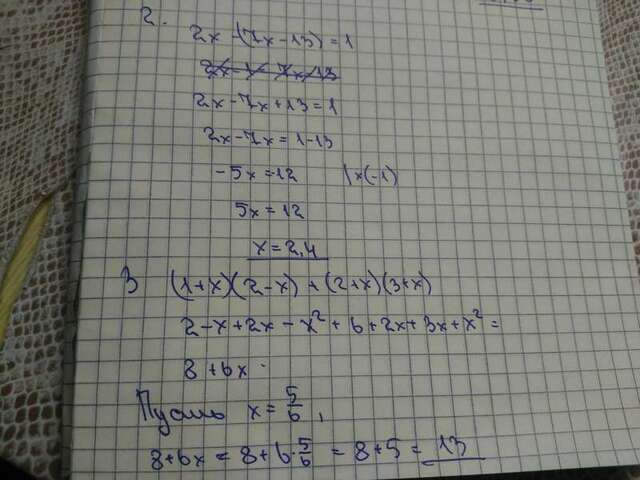 2.
2x - (7x - 13) = 1
2x - 7x + 13 = 1
2x - 7x = 1 - 13
-5x = 12 | x(-1)
5x = 12
x = 2,4
3 (1+x)(2-x) + (2+x)(3+x)
2 - x + 2x - x² + 6 + 2x + 3x + x² =
8 + 6x
Пусть x = 5/6,
8 + 6x = 8 + 6 · 5/6 = 8 + 5 = 13